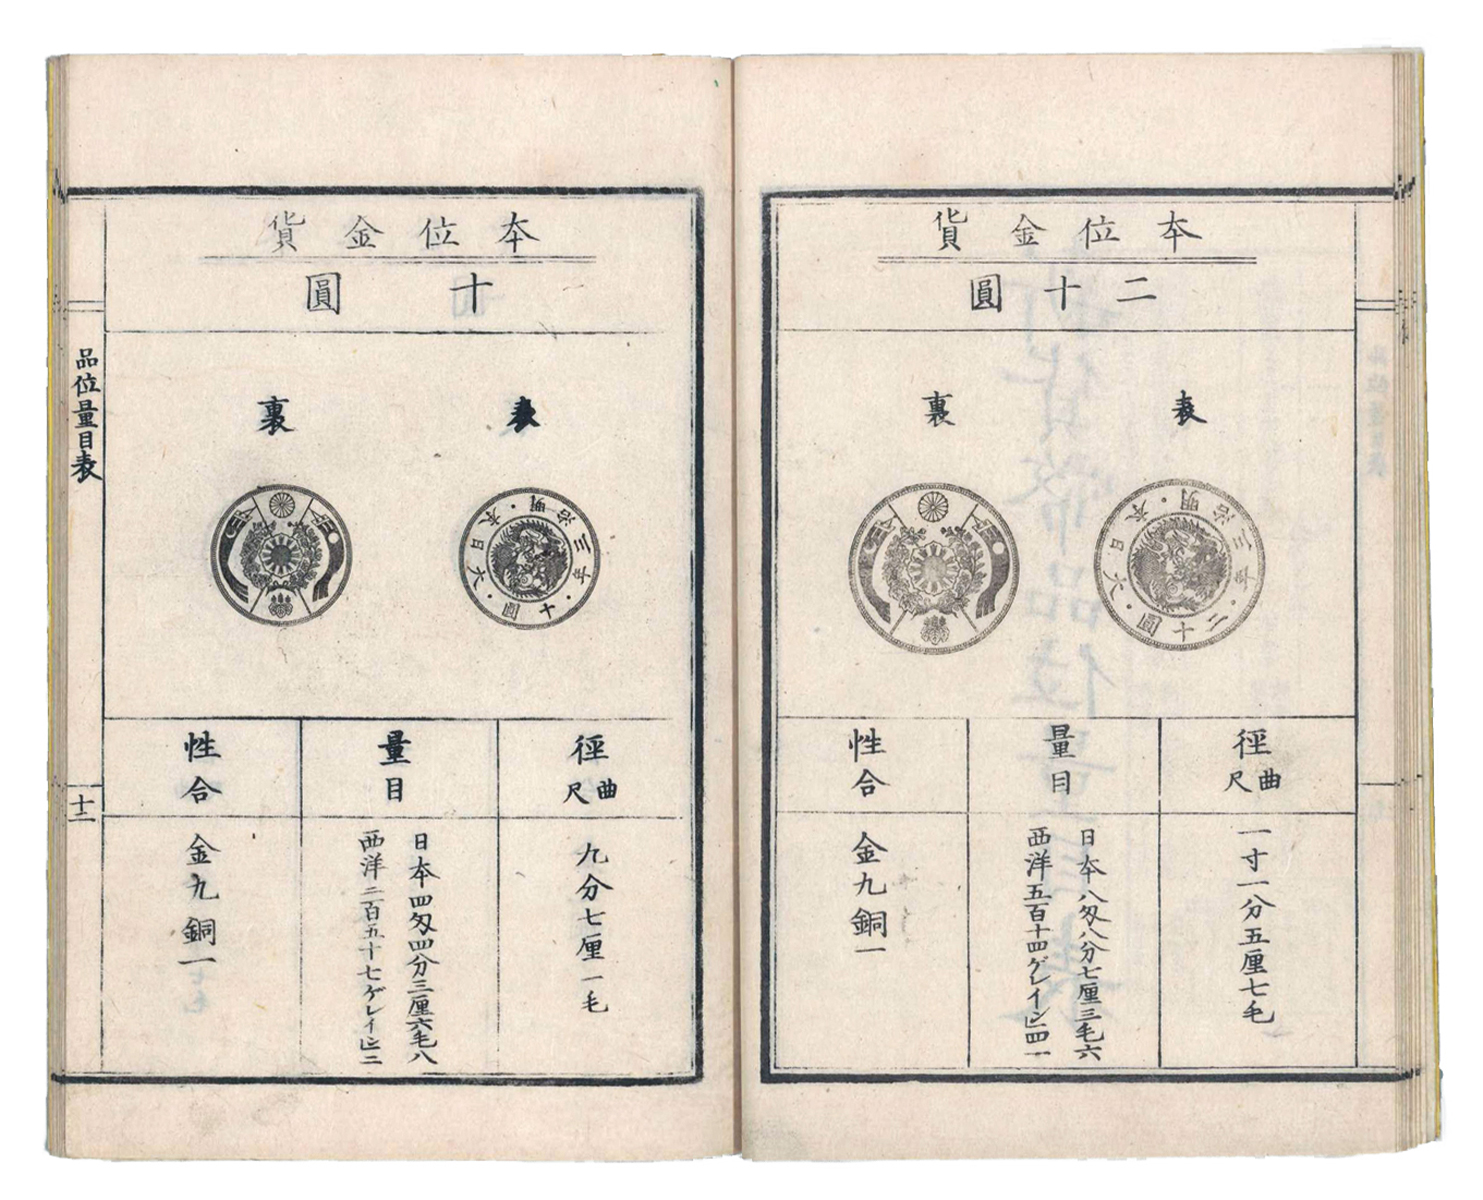 本位金貨
二十圓
表
裏
大日本・明治三年・二十圓・
徑
曲尺
一寸一分五厘七毛
量目
日本八匁八分七厘三毛六
西洋五百十四ゲレイン四一
性合
金九銅一
本位金貨
十圓
表
裏
大日本・明治三年・十圓・
徑
曲尺
九分七厘一毛
量目
日本四匁四分三厘六毛八
西洋二百五十七ゲレイン二
性合
金九銅一
品位量目表
十二